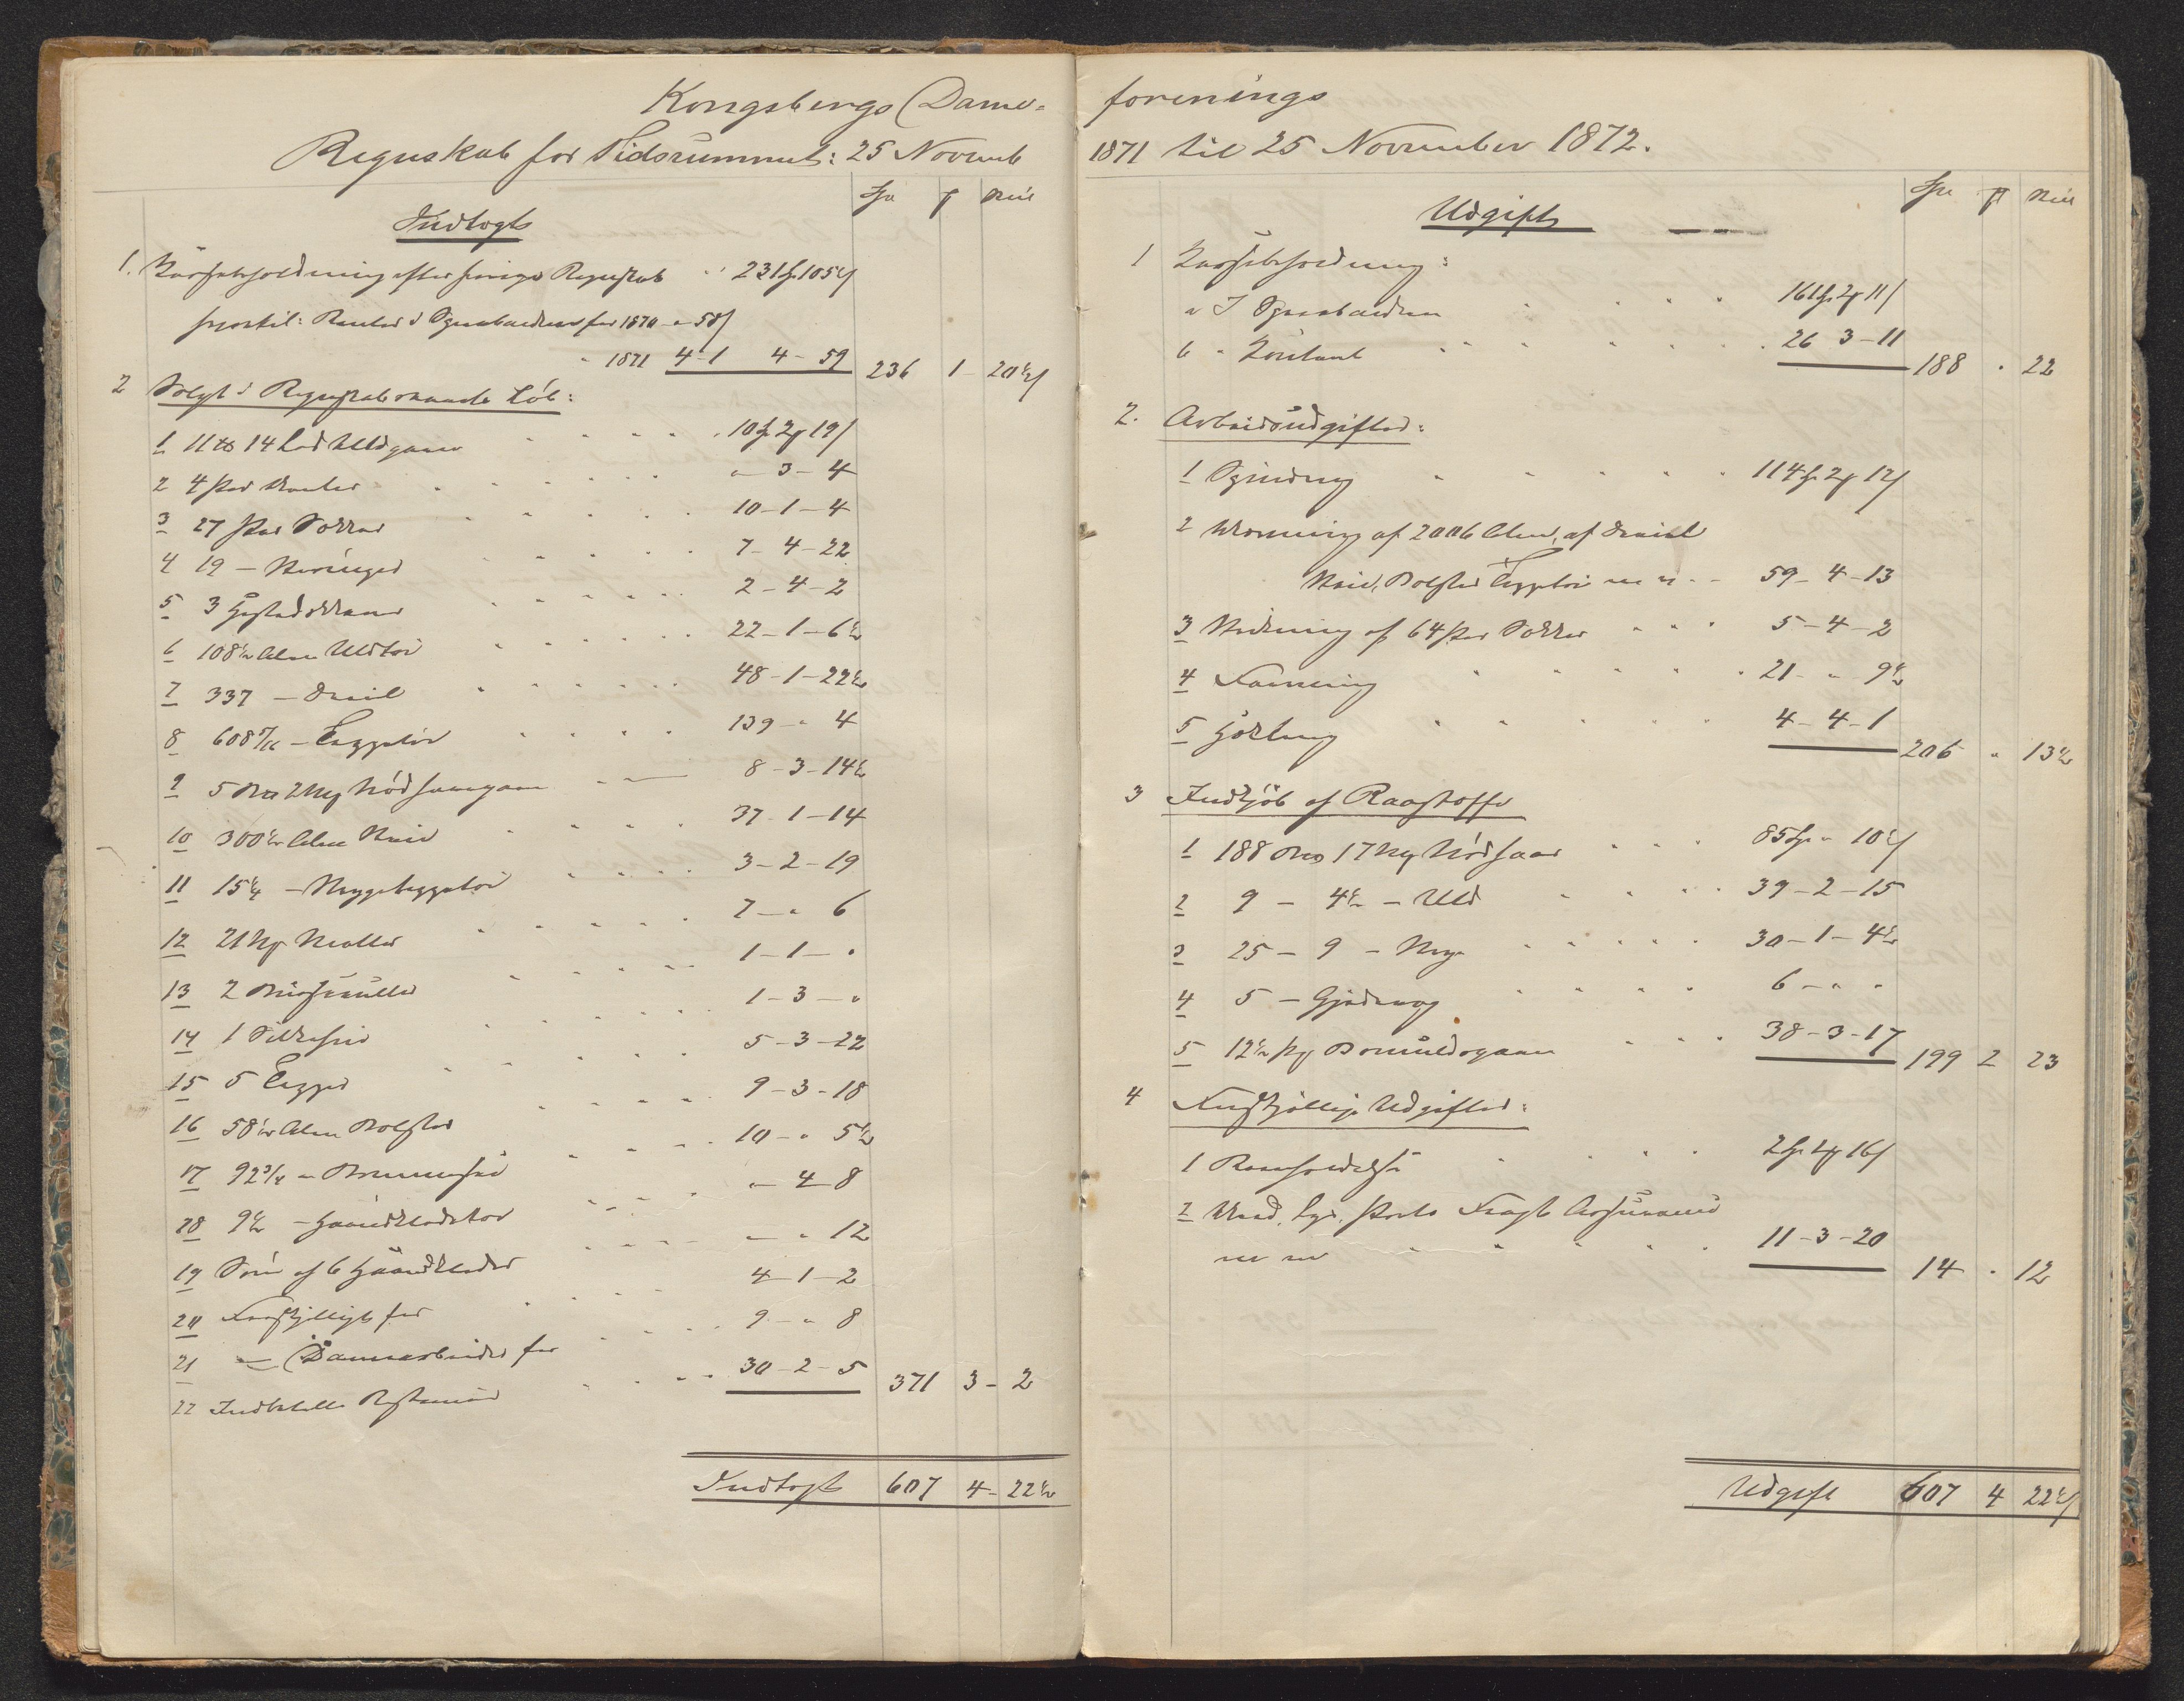 Kongsbergs Dame-
Regnskab for Tidsrummet: 25 Novemb
Indtægt
Spd ℔ Skill
1. Kassabeholdning efter forrige Regnskab 231 Spd 105½ ß
hvortil: Renter i Sparebanken for 1870 " 58 ß
" 1871 4-1 4-59 236 1 20½ ß
2 Solgt i Regnskabsaarets Løb:
1 11 ℔ 14 Lod Uldgarn 10 2 19 ß
2 4 Par Vanter " 3-4
3 27 Par Sokker 10-1-4
4 19 — Strømper 7-4-22
5 3 2-4-2
6 108½ Alen Uldtøi 22-1-6½
7 337 — Dreiel 48-1-22½
8 608 — Teppetøi 139 - " 4
9 5 2 Nødhaargarn 8-3-14½
10 300½ Alen Strie 37-1-14
11 15¼ — Teppetøi 3-2-19
12 21 Matter 7 - " 6
13 2 1-1-"
14 1 1-3-"
15 5 Tepper 5-3-22
16 58½ Alen Bolster 9-3-18
17 92¾ — 10 - " 5½
18 9½ — Haandklædetøi " 4-8
19 Søm af 6 Haandklæder " - " 12
20 Forskjelligt for 4-1-2
21 — Damearbeider for 9 - " 8
22 Indbetalte Restancer 30-2-5 371 3-2
Indtægt 607 4-22½
forenings
1871 til 25 November 1872.
Udgift
Spd ℔ Skill
1 Kassabeholdning:
a I Sparebanken 161 2 11 ß
b " Kontant 26 3-11 188 " 22
2. Arbeidsudgifter:
1 Spinding 114 2 12 ß
2 Vævning af 2006 Alen af Dreiel
Strie, Bolster Teppetøi m m 59-4-13
3 Strikning af 64 Par Sokker 5-4-2
4 Farvning 21 - " 9½
5 Hækling 4-4-1 206 " 13½
3 Indkjøb af Raastoffe
1 188 17 Nødhaar 85 " 10½ ß
2 9 — 4½ — Uld 39-2-15
3 25 — 9 — 30-1-4½
4 5 — 6 - " "
5 12½ Bomuldsgarn 38-3-17 199 2 23
4 Forskjellige Udgifter:
1 Renholdelse 2 2 16 ß
2 Ved, Lys, Porto Fragt Assurance
m m 11-3-20 14 " 12
Udgift 607 4 22½ ß